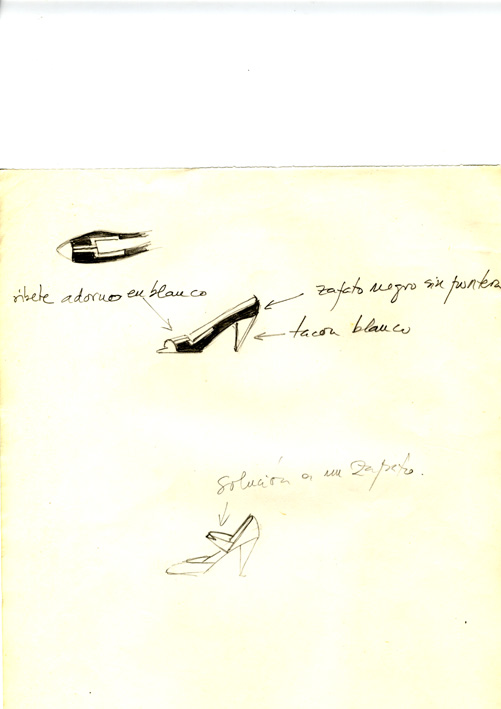 ribete adornos en blanco
zapato negro sin puntera
tacon blanco
solución a un zapato.